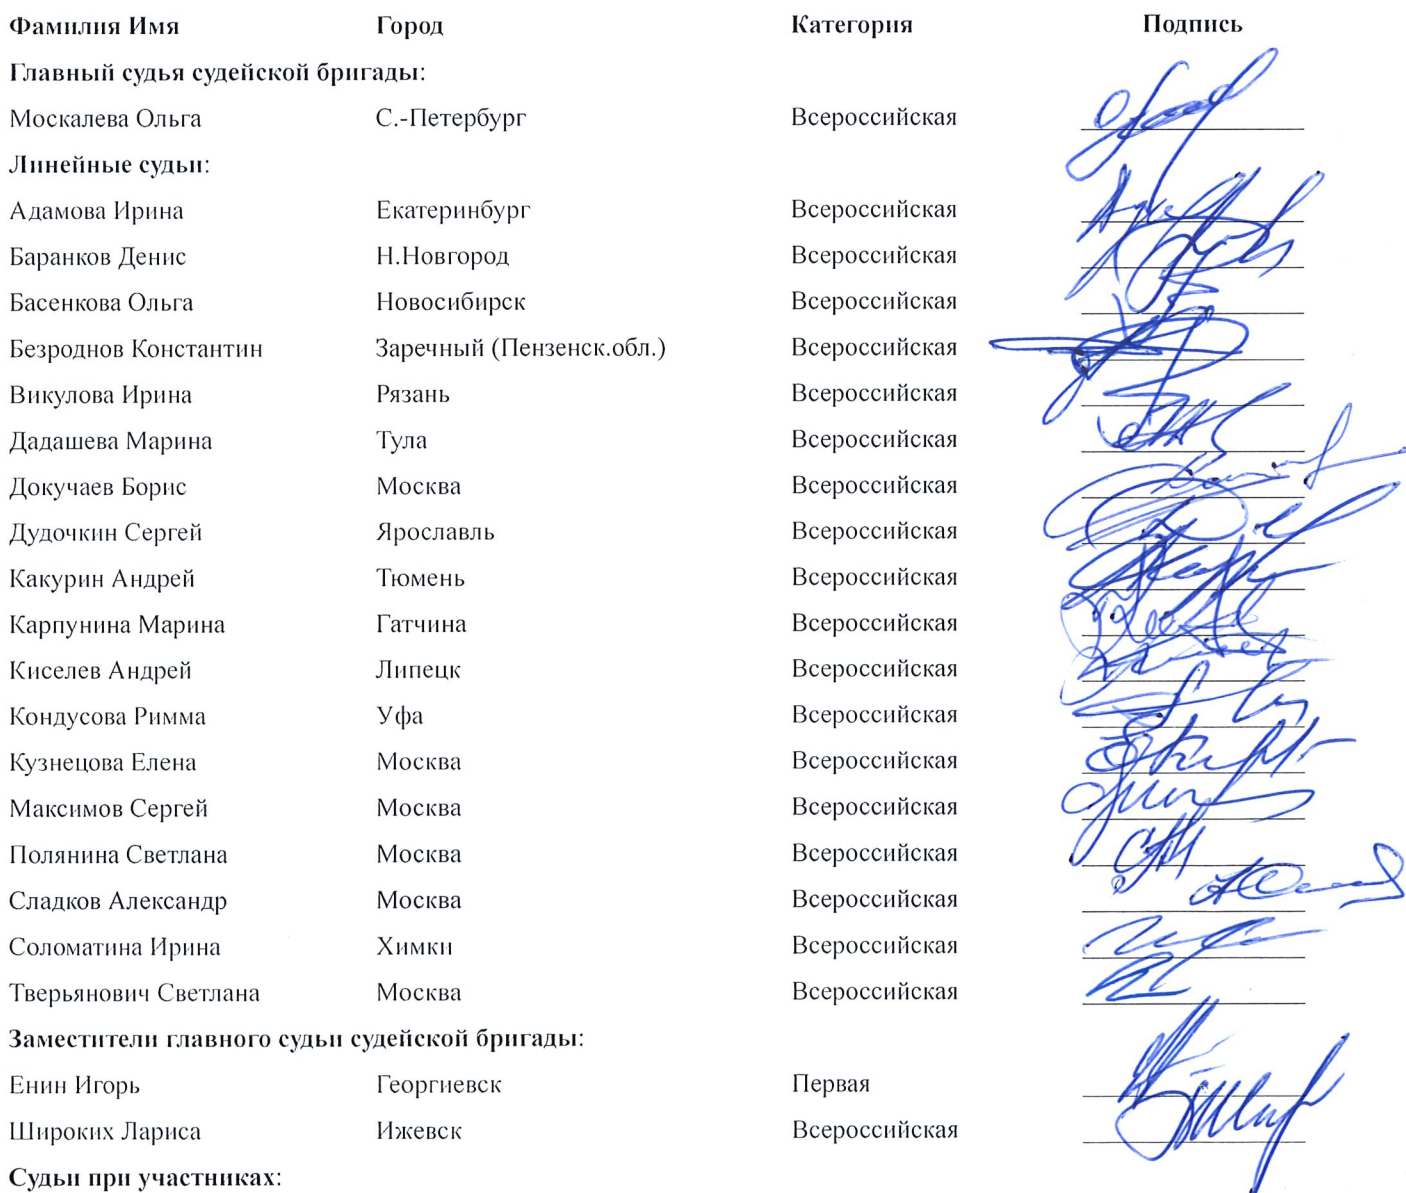 Фамилия Имя Город Категория Подпись
Главный судья судейской бригады:
Москалева Ольга С.-Петербург Всероссийская
Линейные судьи:
Адамова Ирина Екатеринбург Всероссийская
Баранков Денис Н.Новгород Всероссийская
Басенкова Ольга Новосибирск Всероссийская
Безроднов Константин Заречный (Пензенск.обл.) Всероссийская
Викулова Ирина Рязань Всероссийская
Дадашева Марина Тула Всероссийская
Докучаев Борис Москва Всероссийская
Дудочкин Сергей Ярославль Всероссийская
Какурин Андрей Тюмень Всероссийская
Карпунина Марина Гатчина Всероссийская
Киселев Андрей Липецк Всероссийская
Кондусова Римма Уфа Всероссийская
Кузнецова Елена Москва Всероссийская
Максимов Сергей Москва Всероссийская
Полянина Светлана Москва Всероссийская
Сладков Александр Москва Всероссийская
Соломатина Ирина Химки Всероссийская
Тверьянович Светлана Москва Всероссийская
Заместители главного судьи судейской бригады:
Енин Игорь Георгиевск Первая
Широких Лариса Ижевск Всероссийская
Судьи при участниках: